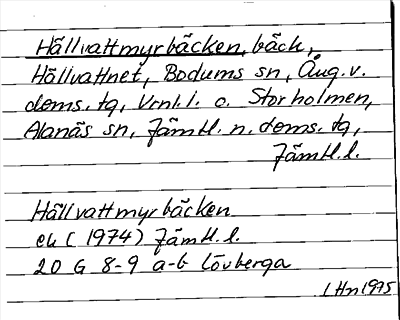 Hällvattmyrbäcken, bäck,
Hällvattnet, Bodums sn, Ång.v.
doms. tg, Vrnl.l. o. Storholmen,
Alanäs sn, Jämtl. n. doms. tg,
Jämtl.l.
Hällvattmyrbäcken
ek (1974) Jämtl.l.
20 G 8-9 a-b Lövberga
LHn 1975